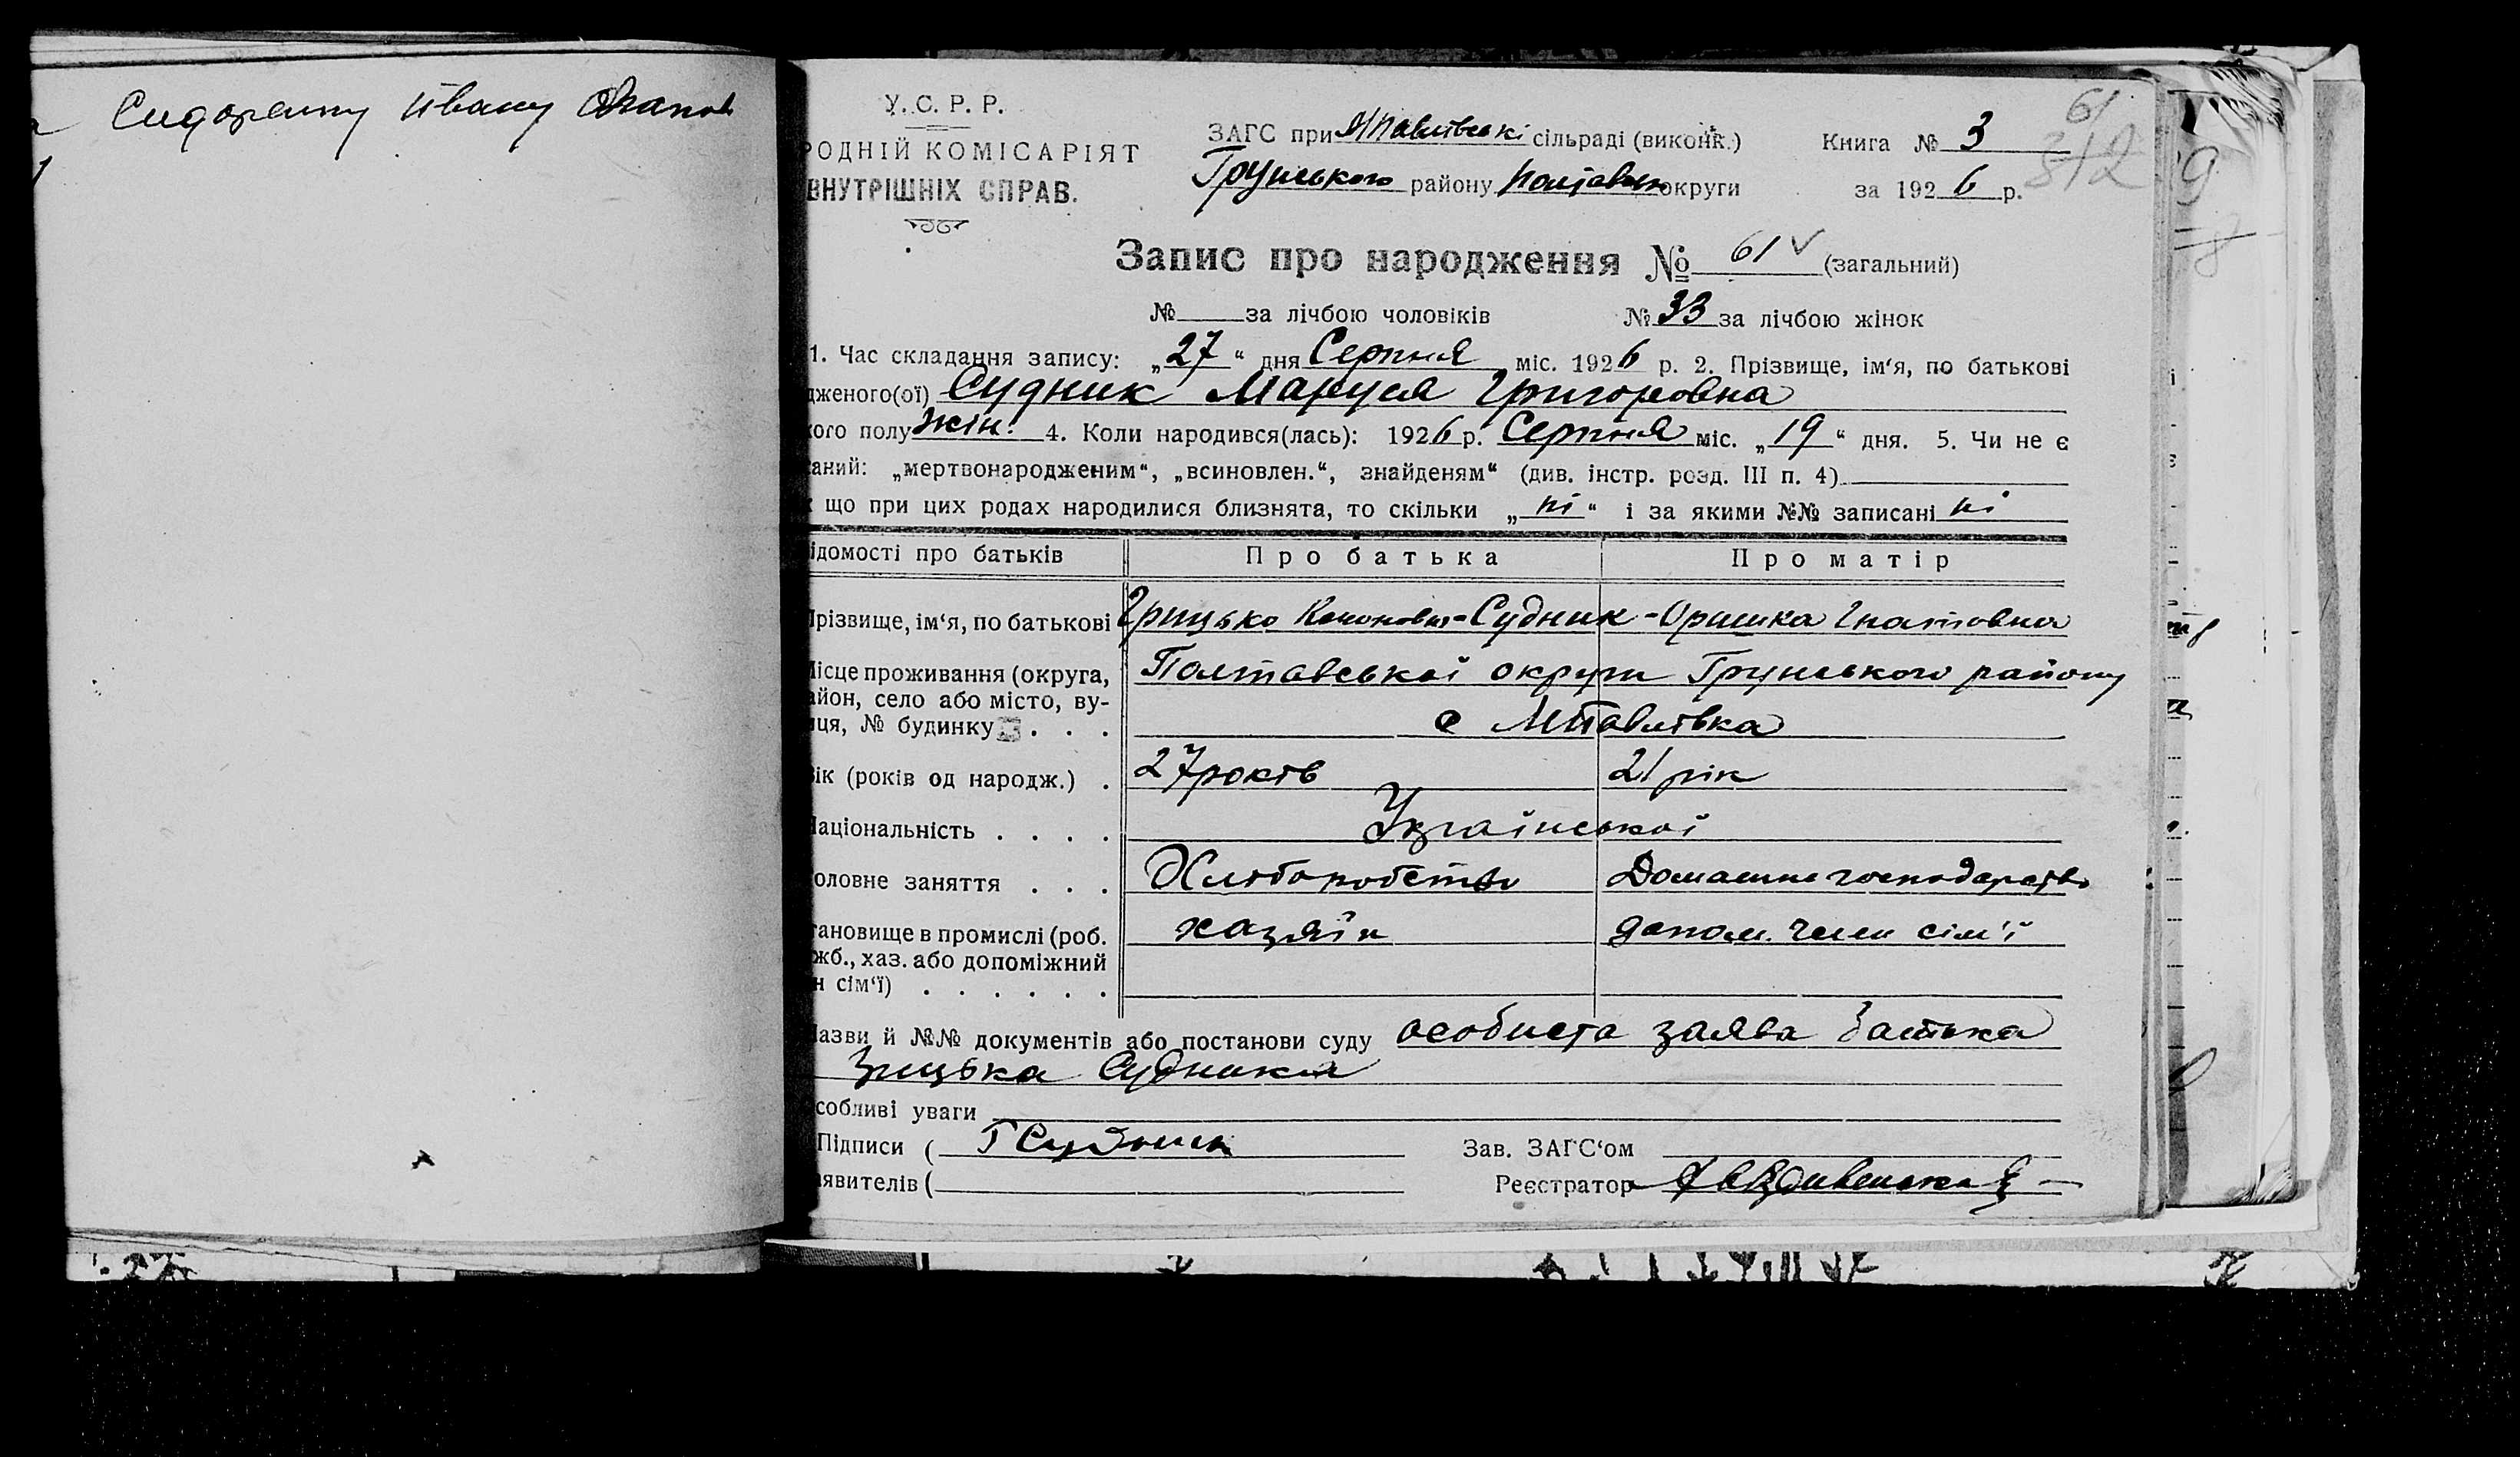 Сидоренку Ивану
У. С. Р. Р.
РОДНІЙ КОМІСАРІЯТ
ВНУТРІШНІХ СПРАВ.
ЗАГС при М Павлівські сільраді (виконк.)
Грунського району Полтавськ округи
Книга № 3
за 1926 р.
61
312
Запис про народження № 61 (загальний)
№ за лічбою чоловіків № 33 за лічбою жінок
1. Час складання запису: „27“ дня Серпня міс. 1926 р. 2. Прізвище, ім‘я, по батькові
дженого(ої) Судник Маруся Григоровна
кого полу жін. 4. Коли народився(лась): 1926 р. Серпня міс. „19“ дня. 5. Чи не є
аний: „мертвонародженим“, „всиновлен.“, знайденям“ (див. інстр. розд. III п. 4)
що при цих родах народилися близнята, то скільки „ні“ і за якими №№ записані ні
ідомості про батьків Про батька Про матір
Прізвище, ім‘я, по батькові Грицько Кононович-Судник-Оришка Гнатовна
Місце проживання (округа, Полтавської округи Грунського району
айон, село або місто, ву-
ця, № будинку . . . с МПавлівка
Вік (років од народж.) . 27 років 21 рік
Національність . . . . Української
оловне заняття . . . Хліборобство Домашнє господарство
тановище в промислі (роб. хазяїн допом. член сім'ї
жб., хаз. або допоміжний
н сім‘ї) . . . . . .
Назви й №№ документів або постанови суду особиста заява батька
Грицька Судника
собливі уваги
Підписи ( Г Судник Зав. ЗАГС‘ом
явителів ( Реєстратор